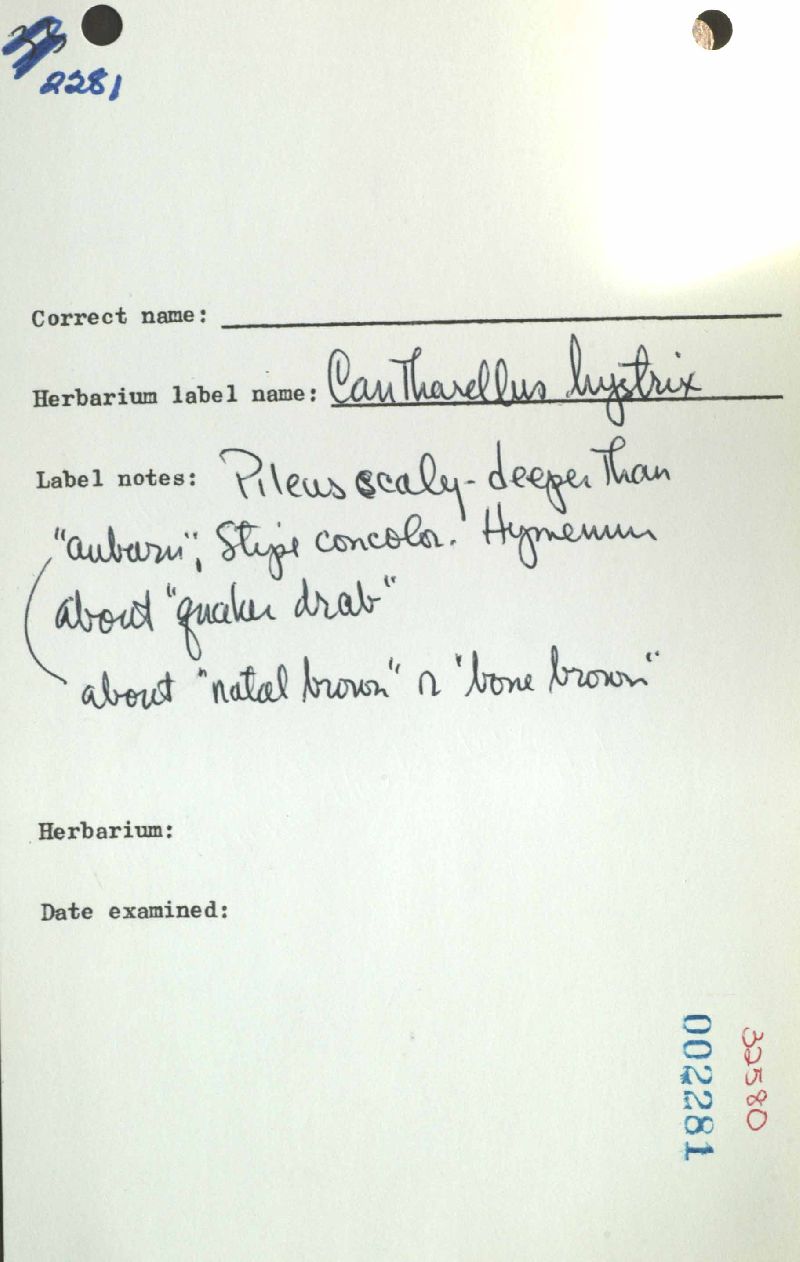 2281
Correct name:
Herbarium label name: Cantharellus hystrix
Label notes: Pileus scaly - deeper than
"auburn", Stipe concolor. Hymenium
about "quaker drab"
about "natal brown" or "bone brown"
Herbarium:
Date examined:
32580
002281